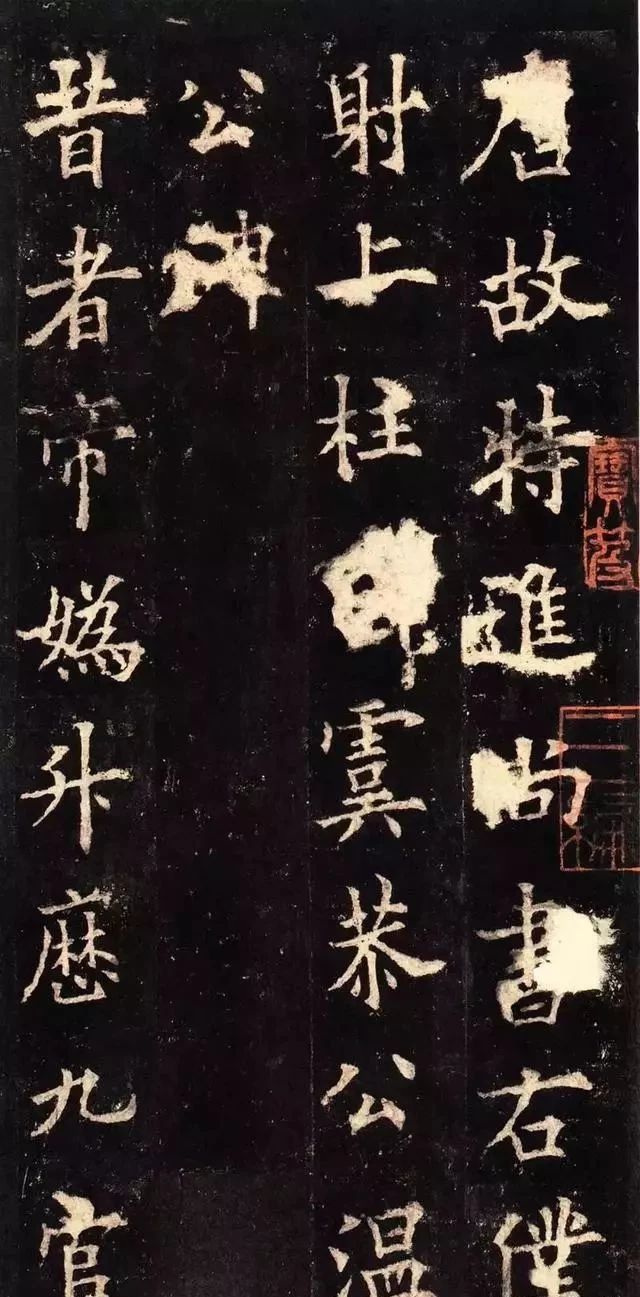 唐故特進尚書右僕
射上柱國虞恭公温
公碑
昔者帝媯升歷九官